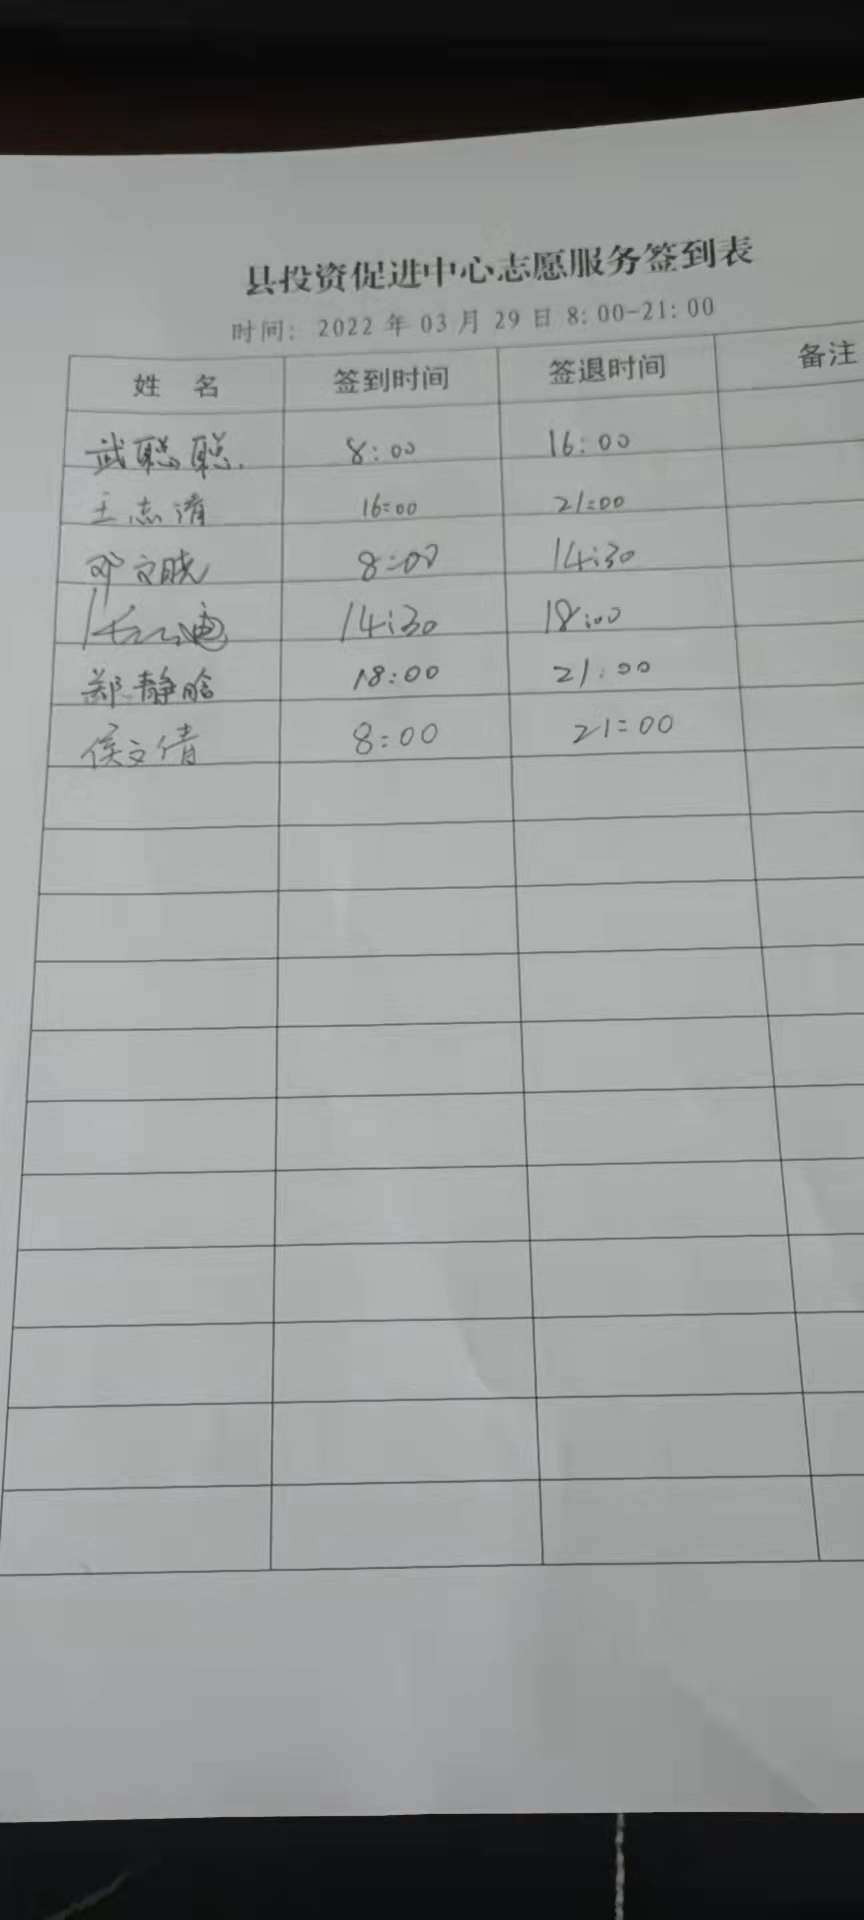 县投资促进中心志愿服务签到表
时间: 2022 年 03 月 29 日 8:00-21:00
姓 名 签到时间 签退时间 备注
武聪聪 8:00 16:00
王志清 16:00 21:00
邓文晓 8:00 14:30
14:30 18:00
郑静晗 18:00 21:00
侯文倩 8:00 21:00